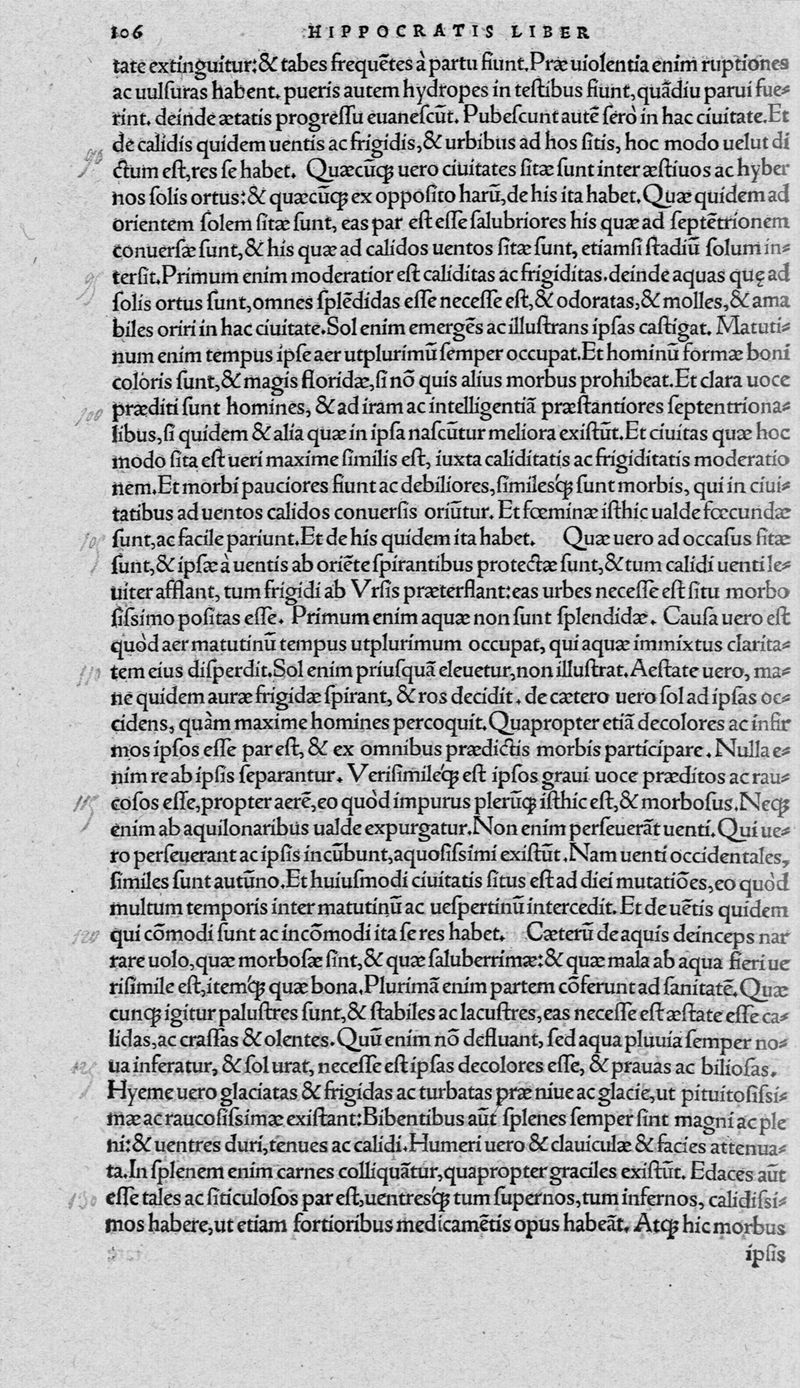 106 HIPPOCRATIS LIBER
tate extinguitur:& tabes frequẽtes à partu fiunt.Præ uiolentia enim ruptiones
ac uulſuras habent. pueris autem hydropes in teſtibus fiunt,quãdiu parui fue⸗
rint. deinde ætatis progreſſu euaneſcũt. Pubeſcunt autẽ ſerò in hac ciuitate.Et
de calidis quidem uentis ac frigidis,& urbibus ad hos ſitis, hoc modo uelut di
ctum eſt,res ſe habet. Quæcũꝗ uero ciuitates ſitæ ſunt inter æſtiuos ac hyber
nos ſolis ortus:& quæcũꝗ ex oppoſito harũ,de his ita habet.Quæ quidem ad
orientem ſolem ſitæ ſunt, eas par eſt eſſe ſalubriores his quæ ad ſeptẽtrionem
conuerſæ ſunt,& his quæ ad calidos uentos ſitæ ſunt, etiamſi ſtadiũ ſolum in⸗
terſit.Primum enim moderatior eſt caliditas ac frigiditas.deinde aquas quę ad
ſolis ortus ſunt,omnes ſplẽdidas eſſe neceſſe eſt,& odoratas,& molles,& ama
biles oriri in hac ciuitate.Sol enim emergẽs ac illuſtrans ipſas caſtigat. Matuti⸗
num enim tempus ipſe aer utplurimũ ſemper occupat.Et hominũ formæ boni
coloris ſunt,& magis floridæ,ſi nõ quis alius morbus prohibeat.Et clara uoce
100 præditi ſunt homines, & ad iram ac intelligentiã præſtantiores ſeptentriona⸗
libus,ſi quidem & alia quæ in ipſa naſcũtur meliora exiſtũt.Et ciuitas quæ hoc
modo ſita eſt ueri maxime ſimilis eſt, iuxta caliditatis ac frigiditatis moderatio
nem.Et morbi pauciores fiunt ac debiliores,ſimilesꝗ́ ſunt morbis, qui in ciui⸗
tatibus ad uentos calidos conuerſis oriũtur. Et fœminæ iſthic ualde fœcundæ
ſunt,ac facile pariunt.Et de his quidem ita habet. Quæ uero ad occaſus ſitæ
ſunt,& ipſæ à uentis ab oriẽte ſpirantibus protectæ ſunt,& tum calidi uenti le⸗
uiter afflant, tum frigidi ab Vrſis præterflant:eas urbes neceſſe eſt ſitu morbo
ſiſsimo poſitas eſſe. Primum enim aquæ non ſunt ſplendidæ. Cauſa uero eſt
quòd aer matutinũ tempus utplurimum occupat, qui aquæ immixtus clarita⸗
110 tem eius diſperdit.Sol enim priuſquã eleuetur,non illuſtrat.Aeſtate uero, ma⸗
ne quidem auræ frigidæ ſpirant, & ros decidit. de cætero uero ſol ad ipſas oc⸗
cidens, quàm maxime homines percoquit.Quapropter etiã decolores ac infir
mos ipſos eſſe par eſt, & ex omnibus prædictis morbis participare. Nulla e⸗
nim re ab ipſis ſeparantur. Veriſimileꝗ́ eſt ipſos graui uoce præditos ac rau⸗
115 coſos eſſe,propter aerẽ,eo quòd impurus plerũꝗ iſthic eſt,& morboſus.Neꝗ
enim ab aquilonaribus ualde expurgatur.Non enim perſeuerãt uenti. Qui ue⸗
ro perſeuerant ac ipſis incũbunt,aquoſiſsimi exiſtũt.Nam uenti occidentales,
ſimiles ſunt autũno.Et huiuſmodi ciuitatis ſitus eſt ad diei mutatiões,eo quòd
multum temporis inter matutinũ ac ueſpertinũ intercedit. Et de uẽtis quidem
120 qui cõmodi ſunt ac incõmodi ita ſe res habet. Cæterũ de aquis deinceps nar
rare uolo,quæ morboſæ ſint,& quæ ſaluberrimæ:& quæ mala ab aqua fieri ue
riſimile eſt,itemꝗ́ quæ bona.Plurimã enim partem cõferunt ad ſanitatẽ.Quæ
cunꝗ igitur paluſtres ſunt,& ſtabiles ac lacuſtres,eas neceſſe eſt æſtate eſſe ca⸗
lidas,ac craſſas & olentes.Quũ enim nõ defluant, ſed aqua pluuia ſemper no⸗
ua inferatur, & ſol urat, neceſſe eſt ipſas decolores eſſe, & prauas ac bilioſas.
Hyeme uero glaciatas & frigidas ac turbatas præ niue ac glacie,ut pituitoſiſsi⸗
mæ ac raucoſiſsimæ exiſtant:Bibentibus aũt ſplenes ſemper ſint magni ac ple
ni:& uentres duri,tenues ac calidi.Humeri uero & clauiculæ & facies attenua⸗
ta.In ſplenem enim carnes colliquãtur,quapropter graciles exiſtũt. Edaces aũt
130 eſſe tales ac ſiticuloſos par eſt,uentresꝗ́ tum ſupernos,tum infernos, calidiſsi⸗
mos habere,ut etiam fortioribus medicamẽtis opus habeãt. Atꝗ hic morbus
ipſis